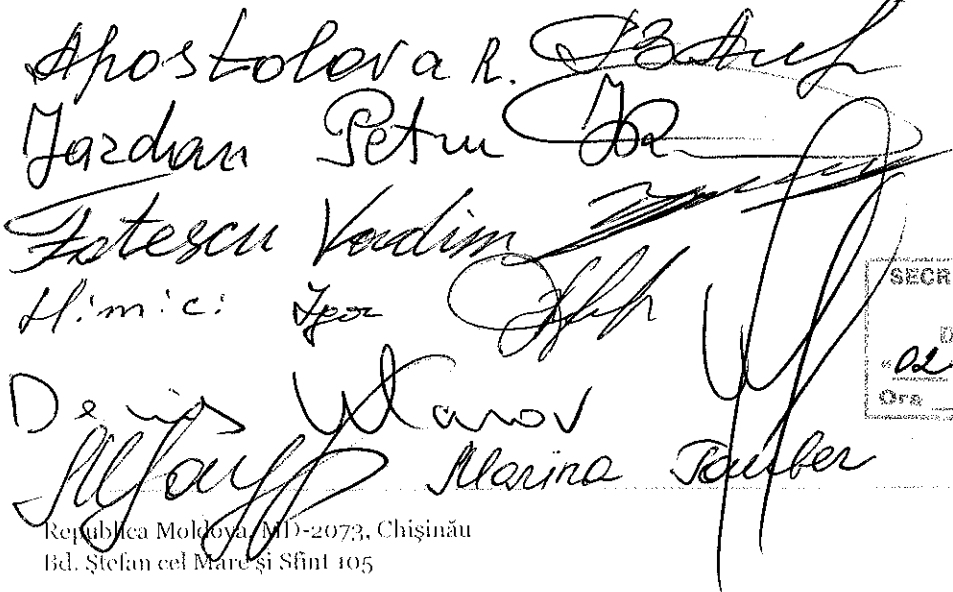 Apostolova R.
Jardan Petru
Fotescu Vadim
Himici Igor
Denis Ulanov
Marina Tauber
SECR
D
«02
Ora
Republica Moldova, MD-2073, Chișinău
Bd. Ștefan cel Mare și Sfint 105